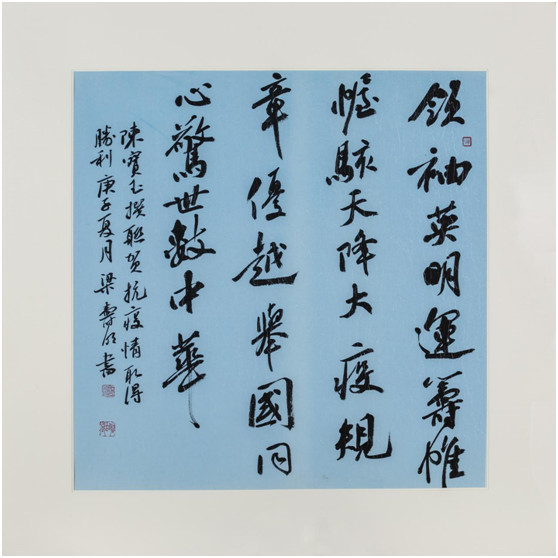 領袖英明運籌帷
幄駭天降大疫規
章優越舉國同
心驚世數中華
陳寶玉撰聯賀抗疫情取得
勝利庚子夏月梁壽明書